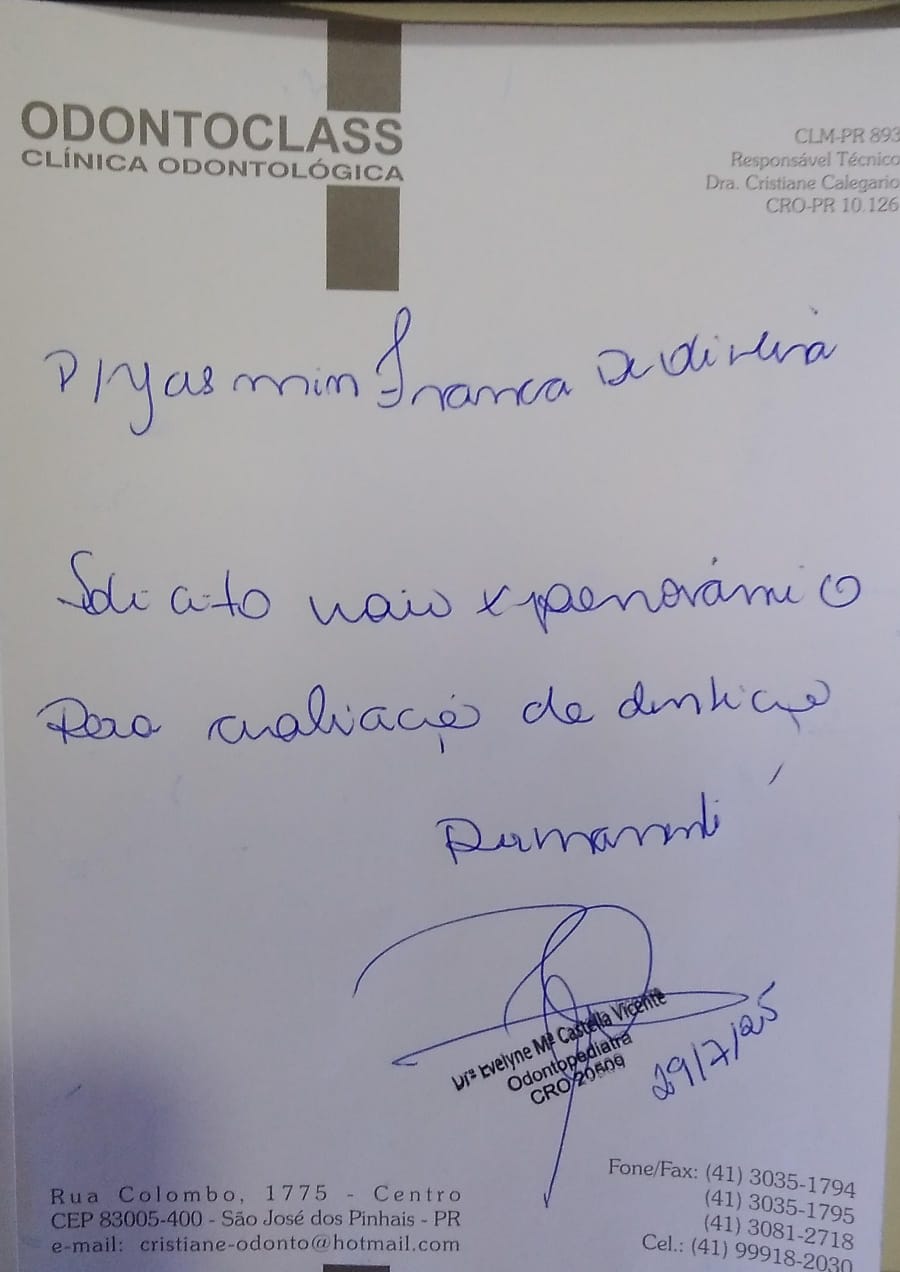 ODONTOCLASS
CLÍNICA ODONTOLÓGICA
CLM-PR 893
Responsável Técnico
Dra. Cristiane Calegario
CRO-PR 10.126
P/ Yasmin Franca De Oliveira
Solicito raio x panorâmico
Para avaliação de dentição
Permanente
Drª Evelyne Mª Castella Vicente
Odontopediatra
CRO 20509
29/7/25
Rua Colombo, 1775 - Centro
CEP 83005-400 - São José dos Pinhais - PR
e-mail: cristiane-odonto@hotmail.com
Fone/Fax: (41) 3035-1794
(41) 3035-1795
(41) 3081-2718
Cel.: (41) 99918-2030